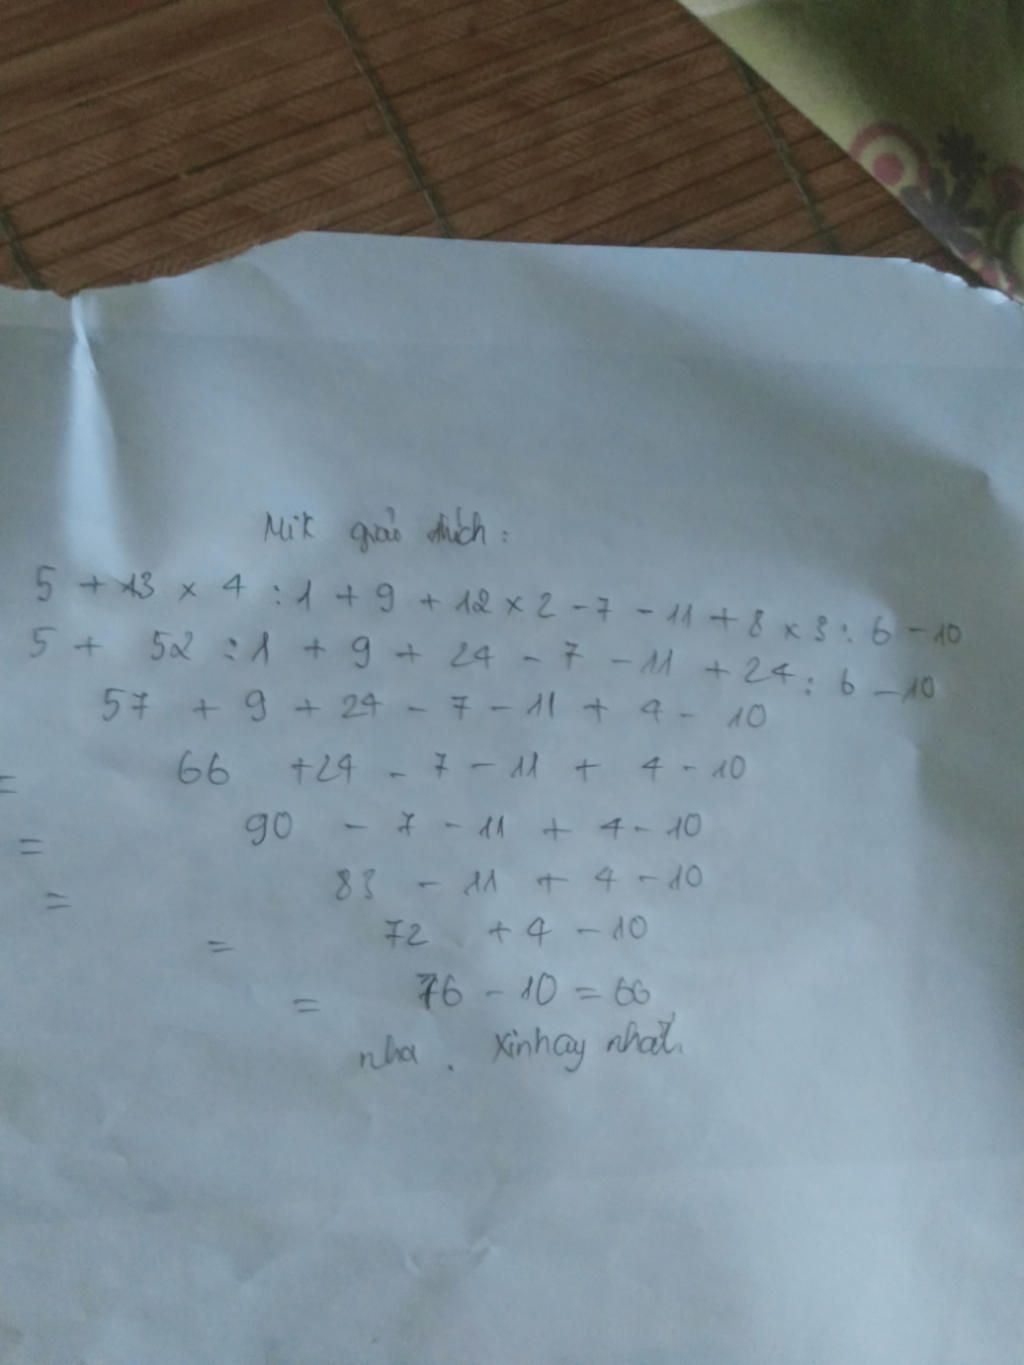 Mik giải thích:
5 + 13 × 4 : 1 + 9 + 12 × 2 - 7 - 11 + 8 × 3 : 6 - 10
5 + 52 : 1 + 9 + 24 - 7 - 11 + 24 : 6 - 10
57 + 9 + 24 - 7 - 11 + 4 - 10
= 66 + 24 - 7 - 11 + 4 - 10
= 90 - 7 - 11 + 4 - 10
= 83 - 11 + 4 - 10
= 72 + 4 - 10
= 76 - 10 = 66
nha . xinhay nhất.